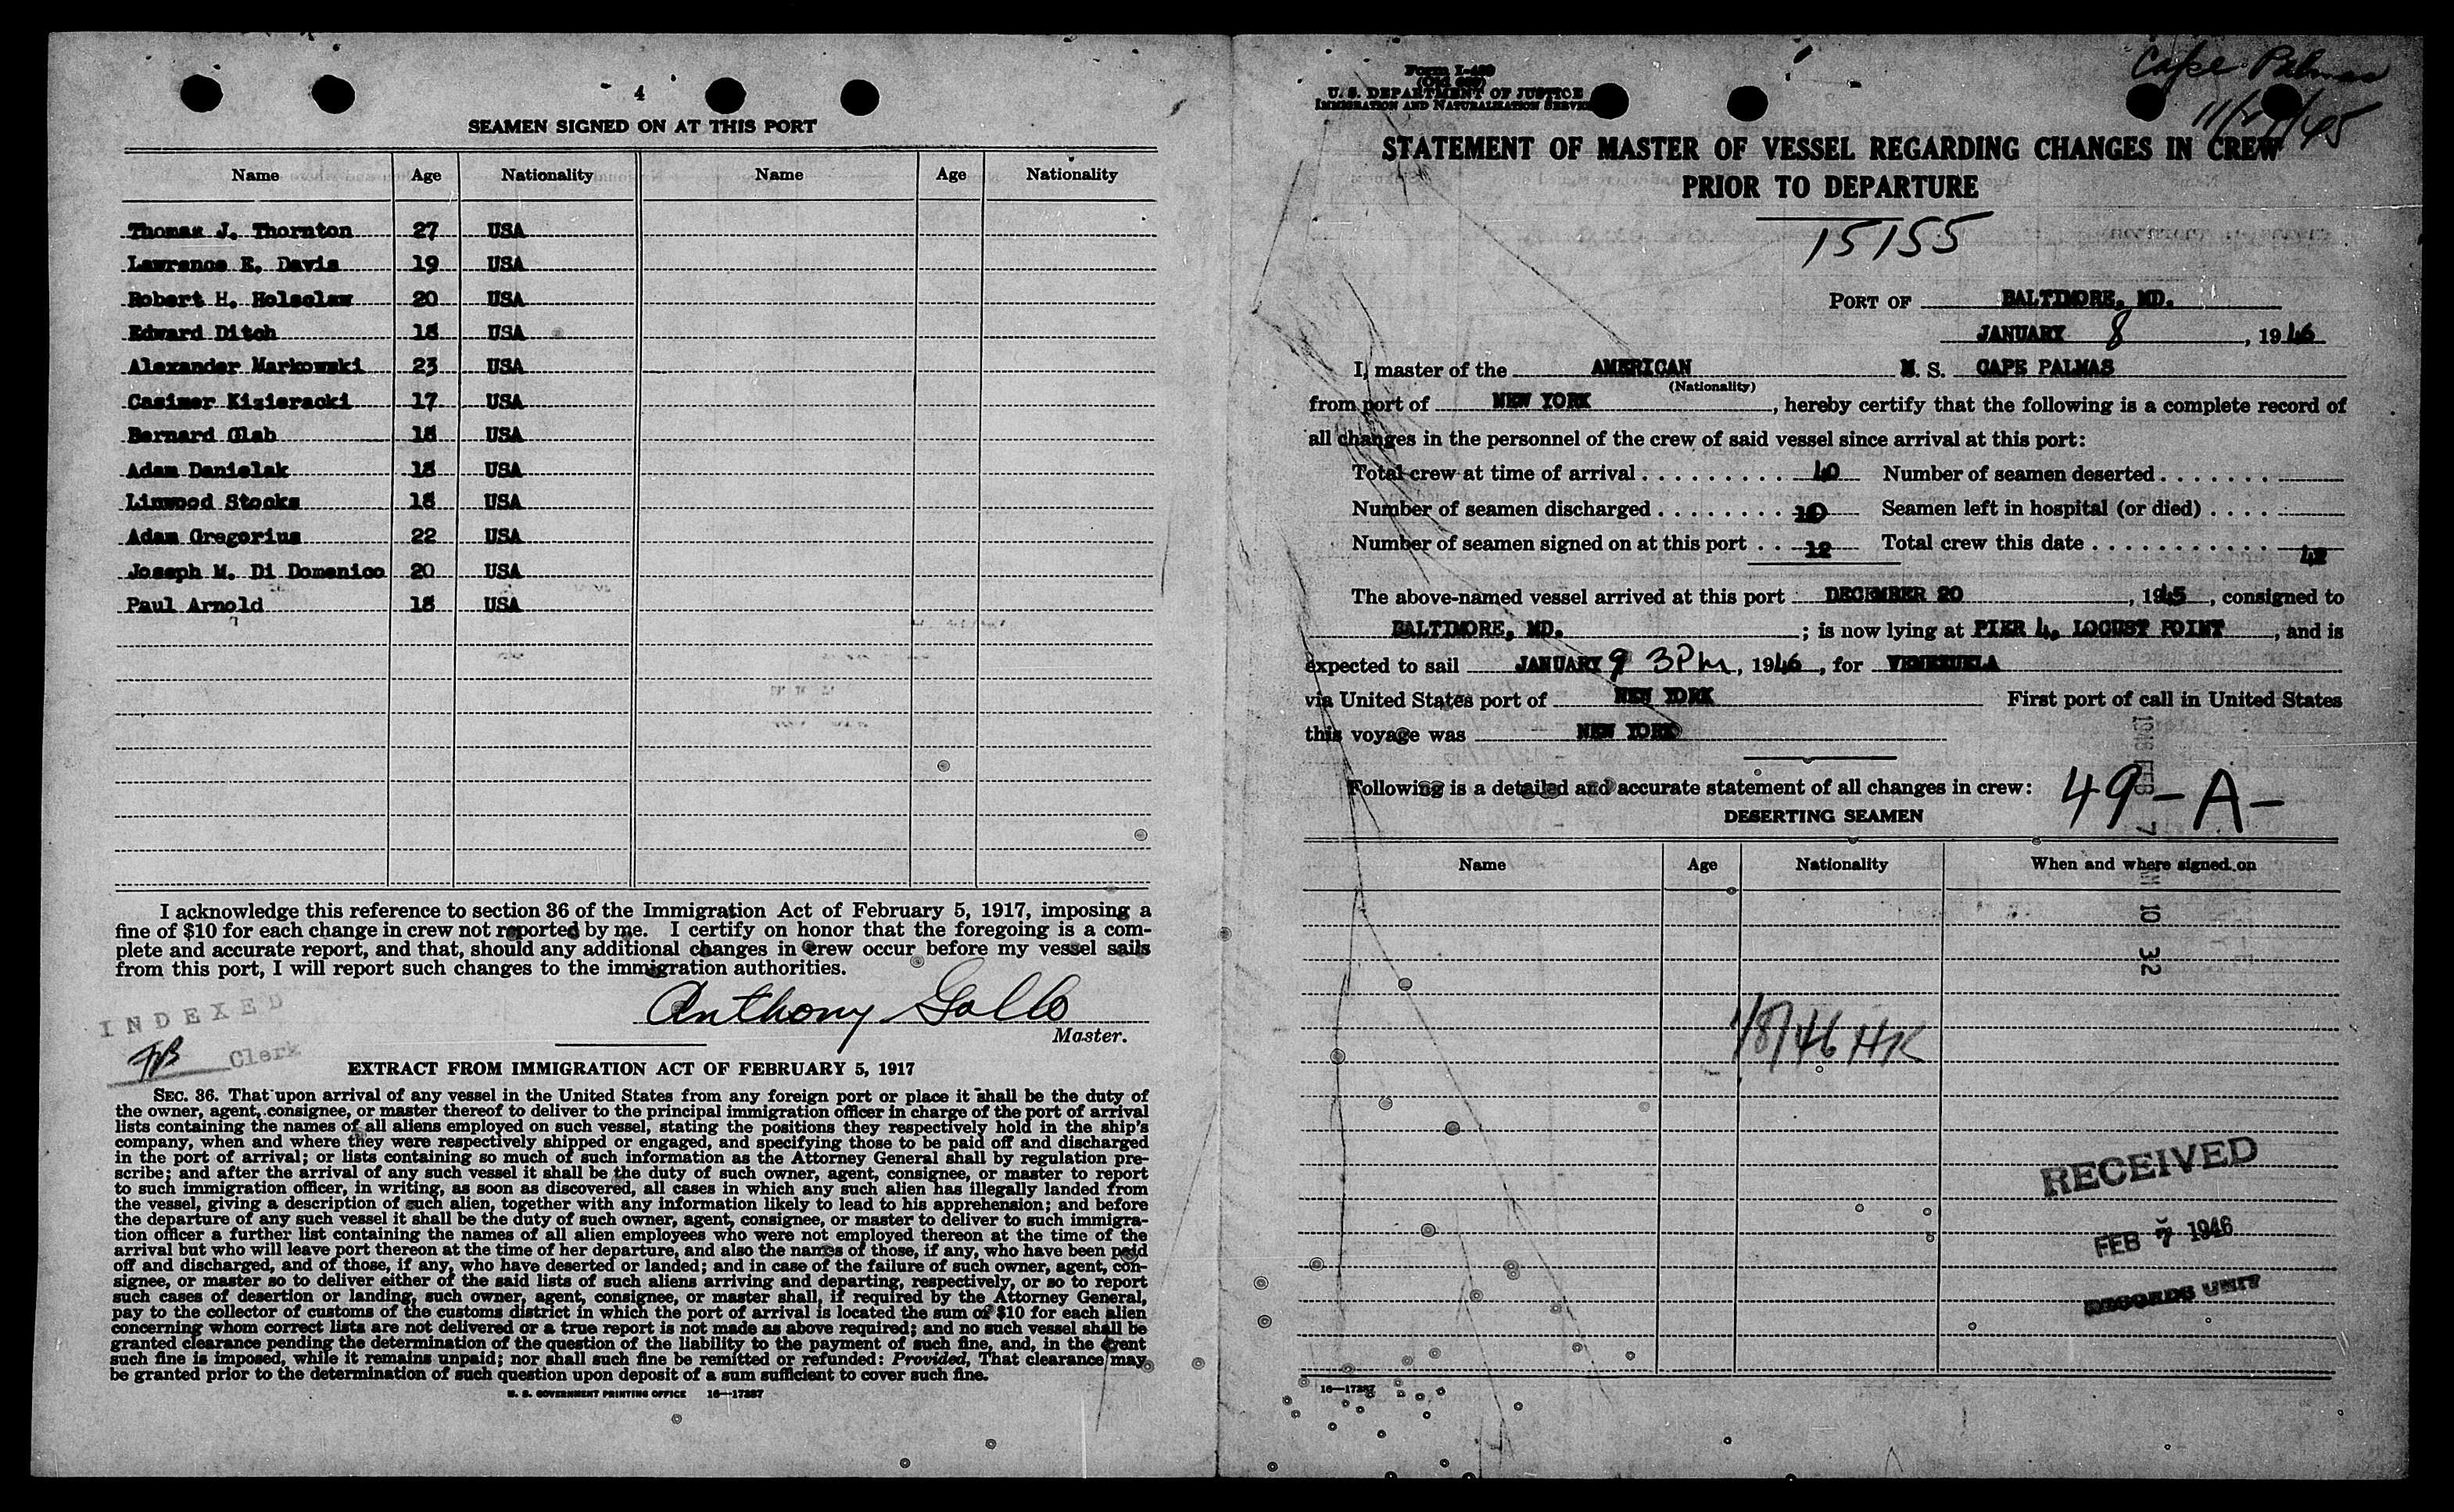 4
SEAMEN SIGNED ON AT THIS PORT
Name Age Nationality Name Age Nationality
Thomas J. Thornton 27 USA
Lawrence E. Davis 19 USA
Robert H. Holsclaw 20 USA
Edward Ditch 18 USA
Alexander Markowski 23 USA
Casimer Kizieracki 17 USA
Bernard Glab 18 USA
Adam Danielak 18 USA
Linwood Stocks 18 USA
Adam Gregorius 22 USA
Joseph M. Di Domenico 20 USA
Paul Arnold 18 USA
I acknowledge this reference to section 36 of the Immigration Act of February 5, 1917, imposing a
fine of $10 for each change in crew not reported by me. I certify on honor that the foregoing is a com-
plete and accurate report, and that, should any additional changes in crew occur before my vessel sails
from this port, I will report such changes to the immigration authorities.
Anthony Gallo
Master.
INDEXED
Clerk
EXTRACT FROM IMMIGRATION ACT OF FEBRUARY 5, 1917
SEC. 36. That upon arrival of any vessel in the United States from any foreign port or place it shall be the duty of
the owner, agent, consignee, or master thereof to deliver to the principal immigration officer in charge of the port of arrival
lists containing the names of all aliens employed on such vessel, stating the positions they respectively hold in the ship's
company, when and where they were respectively shipped or engaged, and specifying those to be paid off and discharged
in the port of arrival; or lists containing so much of such information as the Attorney General shall by regulation pre-
scribe; and after the arrival of any such vessel it shall be the duty of such owner, agent, consignee, or master to report
to such immigration officer, in writing, as soon as discovered, all cases in which any such alien has illegally landed from
the vessel, giving a description of such alien, together with any information likely to lead to his apprehension; and before
the departure of any such vessel it shall be the duty of such owner, agent, consignee, or master to deliver to such immigra-
tion officer a further list containing the names of all alien employees who were not employed thereon at the time of the
arrival but who will leave port thereon at the time of her departure, and also the names of those, if any, who have been paid
off and discharged, and of those, if any, who have deserted or landed; and in case of the failure of such owner, agent, con-
signee, or master so to deliver either of the said lists of such aliens arriving and departing, respectively, or so to report
such cases of desertion or landing, such owner, agent, consignee, or master shall, if required by the Attorney General,
pay to the collector of customs of the customs district in which the port of arrival is located the sum of $10 for each alien
concerning whom correct lists are not delivered or a true report is not made as above required; and no such vessel shall be
granted clearance pending the determination of the question of the liability to the payment of such fine, and, in the event
such fine is imposed, while it remains unpaid; nor shall such fine be remitted or refunded: Provided, That clearance may
be granted prior to the determination of such question upon deposit of a sum sufficient to cover such fine.
U. S. GOVERNMENT PRINTING OFFICE 16—17287
Form I-489
(Old 689)
U. S. DEPARTMENT OF JUSTICE
IMMIGRATION AND NATURALIZATION SERVICE
Cape Palmas
STATEMENT OF MASTER OF VESSEL REGARDING CHANGES IN CREW
PRIOR TO DEPARTURE
15155
PORT OF BALTIMORE, MD.
JANUARY 8, 1946
I, master of the AMERICAN M. S. CAPE PALMAS
(Nationality)
from port of NEW YORK, hereby certify that the following is a complete record of
all changes in the personnel of the crew of said vessel since arrival at this port:
Total crew at time of arrival 40 Number of seamen deserted
Number of seamen discharged 10 Seamen left in hospital (or died)
Number of seamen signed on at this port 12 Total crew this date 42
The above-named vessel arrived at this port DECEMBER 20, 1945, consigned to
BALTIMORE, MD.; is now lying at PIER 4, LOCUST POINT, and is
expected to sail JANUARY 9 3PM, 1946, for VENEZUELA
via United States port of NEW YORK First port of call in United States
this voyage was NEW YORK
Following is a detailed and accurate statement of all changes in crew: 49-A-
DESERTING SEAMEN
Name Age Nationality When and where signed on
1946 FEB 7 AM 10 32
1/8/46 HK
RECEIVED
FEB 7 1946
RECORDS UNIT
16—17287